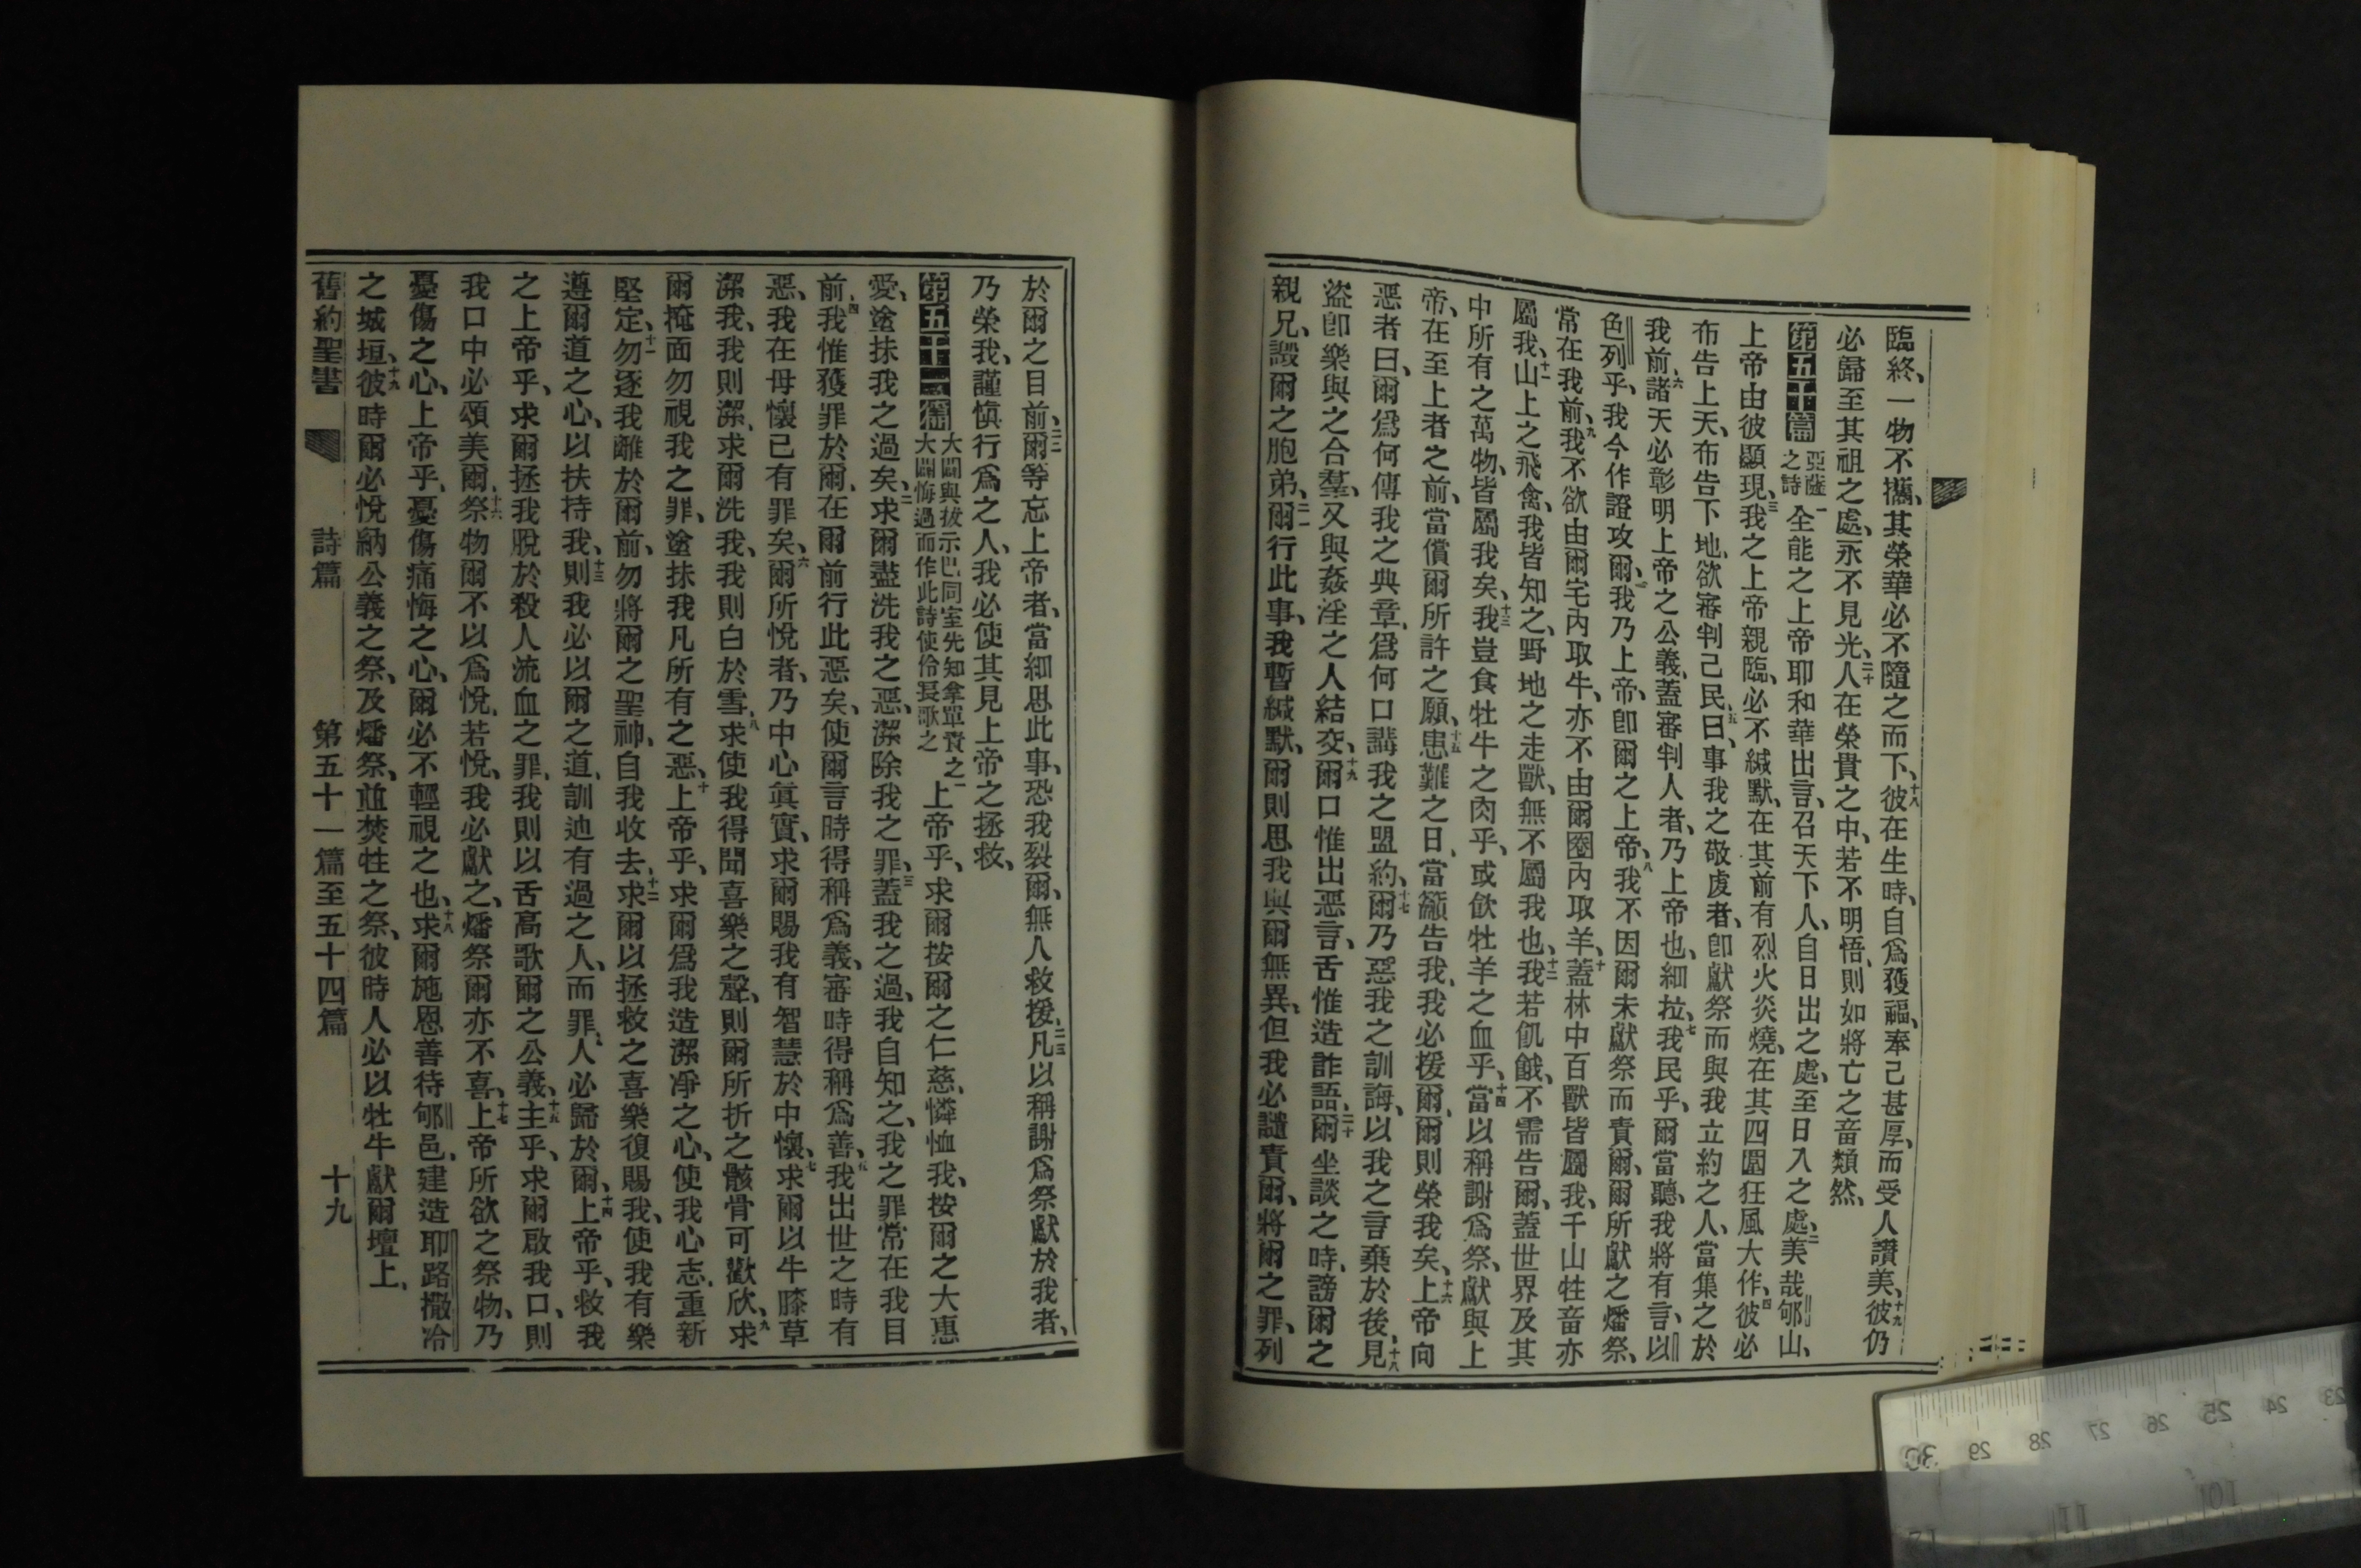 臨終、一物不攜、其榮華必不隨之而下、十八彼在生時、自爲獲福、奉己甚厚、而受人讚美、十九彼仍
必歸至其祖之處、永不見光、二十人在榮貴之中、若不明悟、則如將亡之畜類然、
第五十篇 亞薩之詩 一全能之上帝耶和華出言、召天下人、自日出之處、至日入之處、二美哉郇山、
上帝由彼顯現、三我之上帝親臨、必不緘默、在其前有烈火炎燒、在其四圍狂風大作、四彼必
布告上天、布告下地、欲審判己民、五曰、事我之敬虔者、卽獻祭而與我立約之人、當集之於
我前、六諸天必彰明上帝之公義、蓋審判人者、乃上帝也、細拉、七我民乎、爾當聽、我將有言、以
色列乎、我今作證攻爾、我乃上帝、卽爾之上帝、八我不因爾未獻祭而責爾、爾所獻之燔祭、
常在我前、九我不欲由爾宅內取牛、亦不由爾圈內取羊、十蓋林中百獸皆屬我、千山牲畜亦
屬我、十一山上之飛禽、我皆知之、野地之走獸、無不屬我也、十二我若飢餓、不需告爾、蓋世界及其
中所有之萬物、皆屬我矣、十三我豈食牡牛之肉乎、或飲牡羊之血乎、十四當以稱謝爲祭、獻與上
帝、在至上者之前、當償爾所許之願、十五患難之日、當籲告我、我必援爾、爾則榮我矣、十六上帝向
惡者曰、爾爲何傳我之典章、爲何口講我之盟約、十七爾乃惡我之訓誨、以我之言棄於後、十八見
盜卽樂與之合羣、又與姦淫之人結交、十九爾口惟出惡言、舌惟造詐語、二十爾坐談之時、謗爾之
親兄、譭爾之胞弟、二一爾行此事、我暫緘默、爾則思我與爾無異、但我必譴責爾、將爾之罪、列
於爾之目前、二二爾等忘上帝者、當細思此事、恐我裂爾、無人救援、二三凡以稱謝爲祭獻於我者、
乃榮我、謹愼行爲之人、我必使其見上帝之拯救、
第五十一篇 大闢與拔示巴同室先知拿單責之大闢悔過而作此詩使伶長歌之 一上帝乎、求爾按爾之仁慈、憐恤我、按爾之大惠
愛、塗抹我之過矣、二求爾盡洗我之惡、潔除我之罪、三蓋我之過、我自知之、我之罪常在我目
前、四我惟獲罪於爾、在爾前行此惡矣、使爾言時得稱爲義、審時得稱爲善、五我出世之時有
惡、我在母懷已有罪矣、六爾所悅者、乃中心眞實、求爾賜我有智慧於中懷、七求爾以牛膝草
潔我、我則潔、求爾洗我、我則白於雪、八求使我得聞喜樂之聲、則爾所折之骸骨可歡欣、九求
爾掩面勿視我之罪、塗抹我凡所有之惡、十上帝乎、求爾爲我造潔淨之心、使我心志重新
堅定、十一勿逐我離於爾前、勿將爾之聖神、自我收去、十二求爾以拯救之喜樂復賜我、使我有樂
遵爾道之心、以扶持我、十三則我必以爾之道、訓迪有過之人、而罪人必歸於爾、十四上帝乎、救我
之上帝乎、求爾拯我脫於殺人流血之罪、我則以舌高歌爾之公義、十五主乎、求爾啟我口、則
我口中必頌美爾、十六祭物爾不以爲悅、若悅、我必獻之、燔祭爾亦不喜、十七上帝所欲之祭物、乃
憂傷之心、上帝乎、憂傷痛悔之心、爾必不輕視之也、十八求爾施恩善待郇邑、建造耶路撒冷
之城垣、十九彼時爾必悅納公義之祭、及燔祭、並焚牲之祭、彼時人必以牡牛獻爾壇上、
舊約聖書 詩篇 第五十一篇至五十四篇 十九